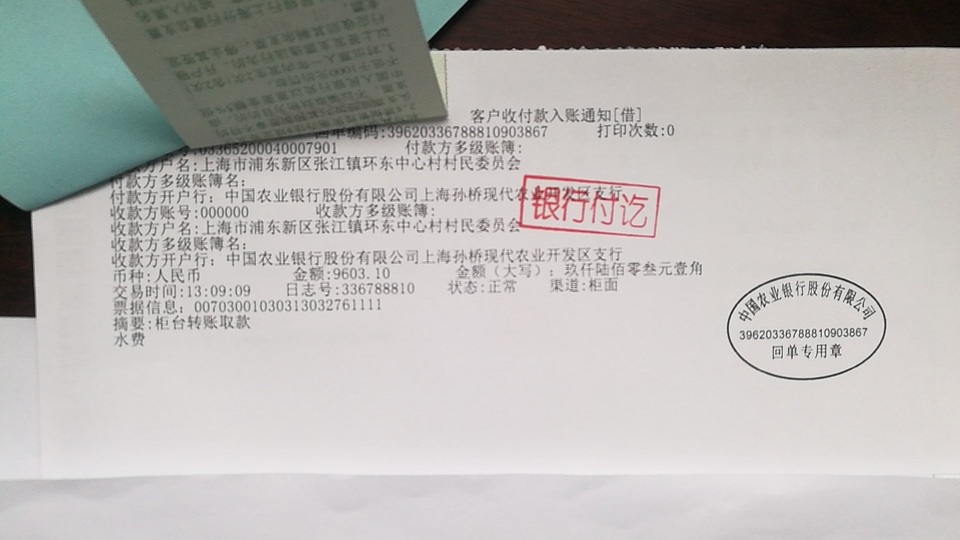 客户收付款入账通知[借]
回单编码:39620336788810903867 打印次数:0
03365200040007901 付款方多级账簿:
付款方户名:上海市浦东新区张江镇环东中心村村民委员会
付款方多级账簿名:
付款方开户行: 中国农业银行股份有限公司上海孙桥现代农业开发区支行
收款方账号:000000 收款方多级账簿:
收款方户名:上海市浦东新区张江镇环东中心村村民委员会
收款方多级账簿名:
收款方开户行: 中国农业银行股份有限公司上海孙桥现代农业开发区支行
币种:人民币 金额:9603.10 金额(大写): 玖仟陆佰零叁元壹角
交易时间:13:09:09 日志号:336788810 状态:正常 渠道:柜面
票据信息: 00703001030313032761111
摘要:柜台转账取款
水费
银行付讫
中国农业银行股份有限公司
39620336788810903867
回单专用章